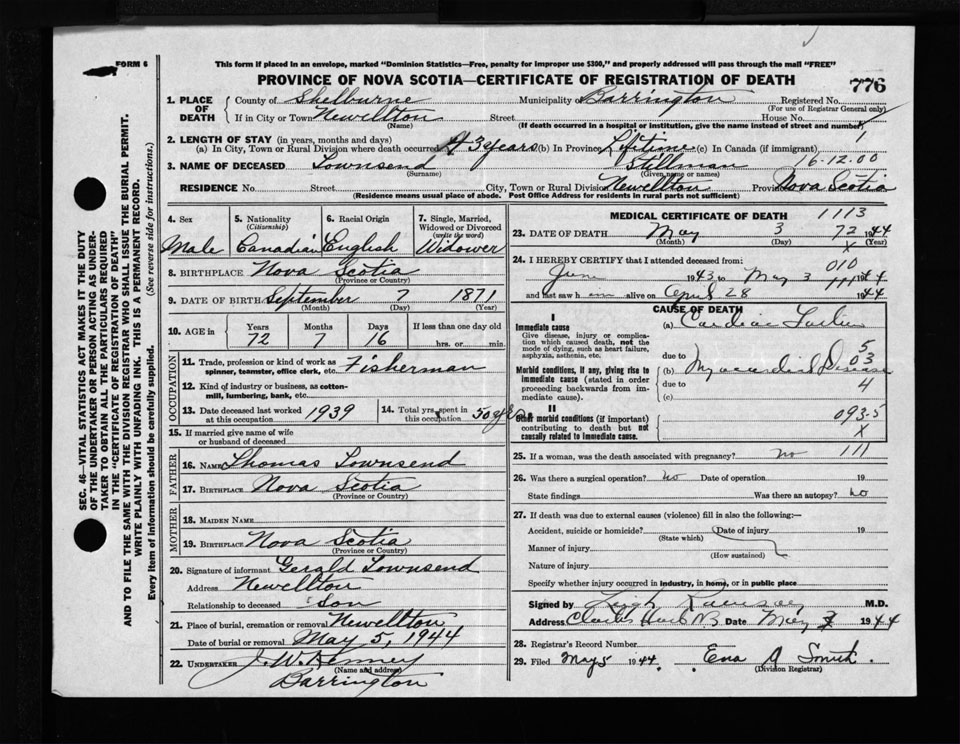 FORM 6
This form if placed in an envelope, marked "Dominion Statistics—Free, penalty for improper use $300," and properly addressed will pass through the mail "FREE"
PROVINCE OF NOVA SCOTIA—CERTIFICATE OF REGISTRATION OF DEATH
776
1. PLACE OF DEATH County of Shelburne Municipality of Barrington Registered No.
(For use of Registrar General only)
If in City or Town Newellton Street House No.
(Name) (If death occurred in a hospital or institution, give the name instead of street and number)
2. LENGTH OF STAY (in years, months and days) 1
(a) In City, Town or Rural Division where death occurred 43 years (b) In Province Lifetime (c) In Canada (if immigrant)
3. NAME OF DECEASED Townsend Stillman 16-12.00
(Surname) (Given name or names)
RESIDENCE No. Street City, Town or Rural Division Newellton Province Nova Scotia
(Residence means usual place of abode. Post Office Address for residents in rural parts not sufficient)
4. Sex 5. Nationality 6. Racial Origin 7. Single, Married,
(Citizenship) Widowed or Divorced
(write the word)
Male Canadian English Widower
8. BIRTHPLACE Nova Scotia
(Province or Country)
9. DATE OF BIRTH September 7 1871
(Month) (Day) (Year)
10. AGE in Years Months Days If less than one day old
72 7 16 hrs. or min.
OCCUPATION
11. Trade, profession or kind of work as Fisherman
spinner, teamster, office clerk, etc.
12. Kind of industry or business, as cotton-
mill, lumbering, bank, etc.
13. Date deceased last worked 1939 14. Total yrs. spent in 50 yrs
at this occupation this occupation
15. If married give name of wife
or husband of deceased
FATHER
16. NAME Thomas Townsend
17. BIRTHPLACE Nova Scotia
(Province or Country)
MOTHER
18. MAIDEN NAME
19. BIRTHPLACE Nova Scotia
(Province or Country)
20. Signature of informant Gerald Townsend
Address Newellton
Relationship to deceased Son
21. Place of burial, cremation or removal Newellton
Date of burial or removal May 5, 1944
22. UNDERTAKER J. W. Kenney
(Name and address)
Barrington
MEDICAL CERTIFICATE OF DEATH 1113
23. DATE OF DEATH May 3 72 1944
(Month) (Day) X (Year)
24. I HEREBY CERTIFY that I attended deceased from: 010
June 1943 to May 3 111 1944
and last saw h im alive on April 28 1944
CAUSE OF DEATH
I
Immediate cause (a) Cardiac Failure
Give disease, injury or complica-
tion which caused death, not the
mode of dying, such as heart failure,
asphyxia, asthenia, etc. due to 5
03
Morbid conditions, if any, giving rise to (b) Myocardial Disease
immediate cause (stated in order due to 4
proceeding backwards from im-
mediate cause). (c)
II
Other morbid conditions (if important) 093-5
contributing to death but not X
causally related to immediate cause.
25. If a woman, was the death associated with pregnancy? no 111
26. Was there a surgical operation? no Date of operation 19
State findings Was there an autopsy? no
27. If death was due to external causes (violence) fill in also the following:—
Accident, suicide or homicide? Date of injury 19
(State which)
Manner of injury
(How sustained)
Nature of injury
Specify whether injury occurred in industry, in home, or in public place
Signed by M.D.
Address Date May 3 1944
28. Registrar's Record Number
29. Filed May 5 1944. Ena A Smith
(Division Registrar)
SEC. 46—VITAL STATISTICS ACT MAKES IT THE DUTY
OF THE UNDERTAKER OR PERSON ACTING AS UNDER-
TAKER TO OBTAIN ALL THE PARTICULARS REQUIRED
IN THE "CERTIFICATE OF REGISTRATION OF DEATH"
AND TO FILE THE SAME WITH THE DIVISION REGISTRAR WHO SHALL ISSUE THE BURIAL PERMIT.
WRITE PLAINLY WITH UNFADING INK. THIS IS A PERMANENT RECORD.
Every item of information should be carefully supplied. (See reverse side for instructions.)